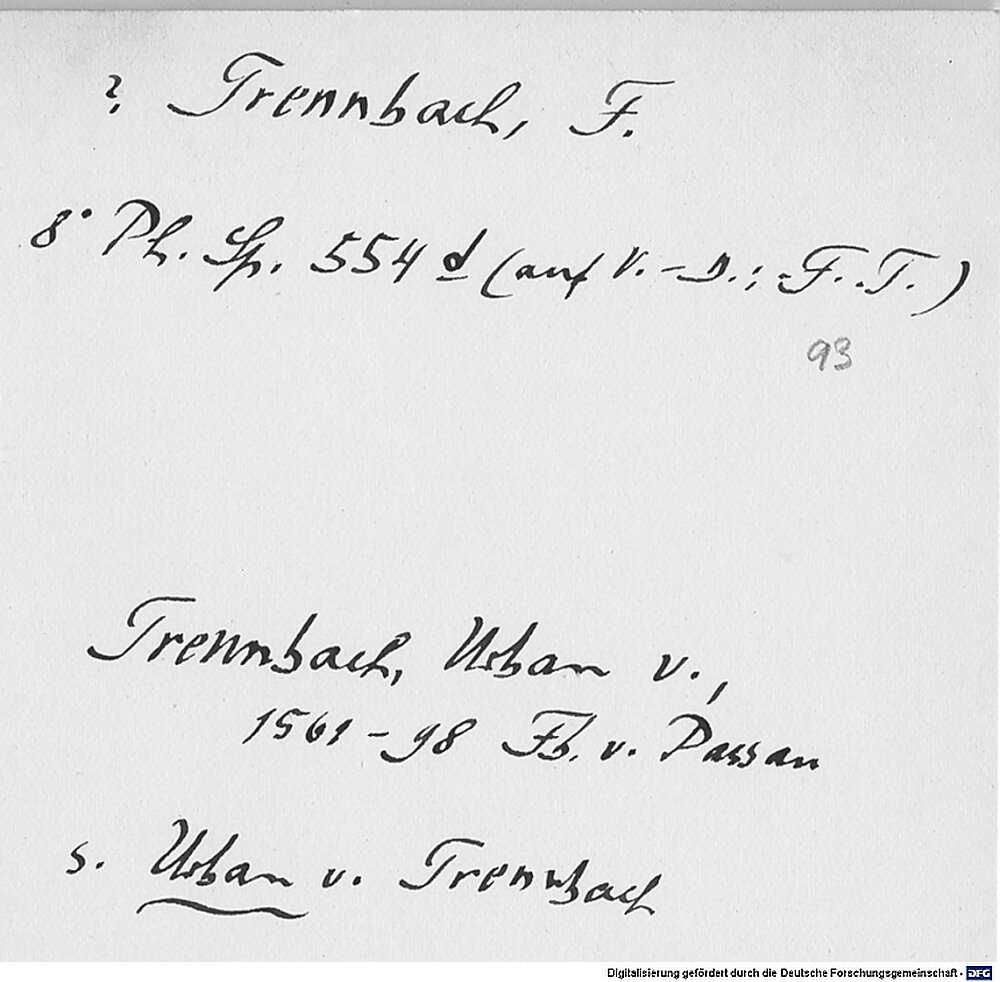 ? Trennbach, F.
8° Ph. Sp. 554 d (auf V.-D.; F. T.)
93
Trennbach, Urban v.,
1561-98 Fb. v. Passau
s. Urban v. Trennbach
Digitalisierung gefördert durch die Deutsche Forschungsgemeinschaft - DFG